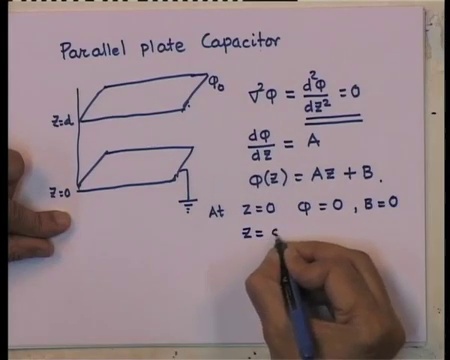 Parallel plate Capacitor
φ₀
∇²φ = d²φ/dz² = 0
z=d
dφ/dz = A
φ(z) = Az + B.
z=0
At z=0 φ=0, B=0
z=